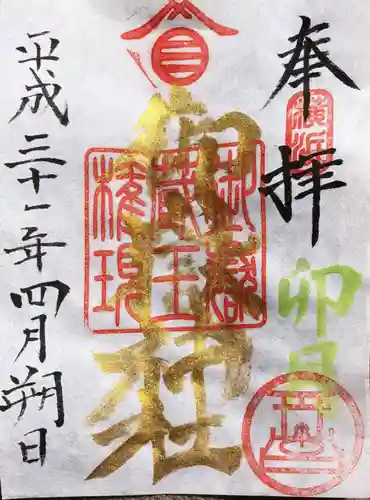 奉拝
横浜
卯月
御嶽
蔵王
権現
御嶽社
平成三十一年四月朔日